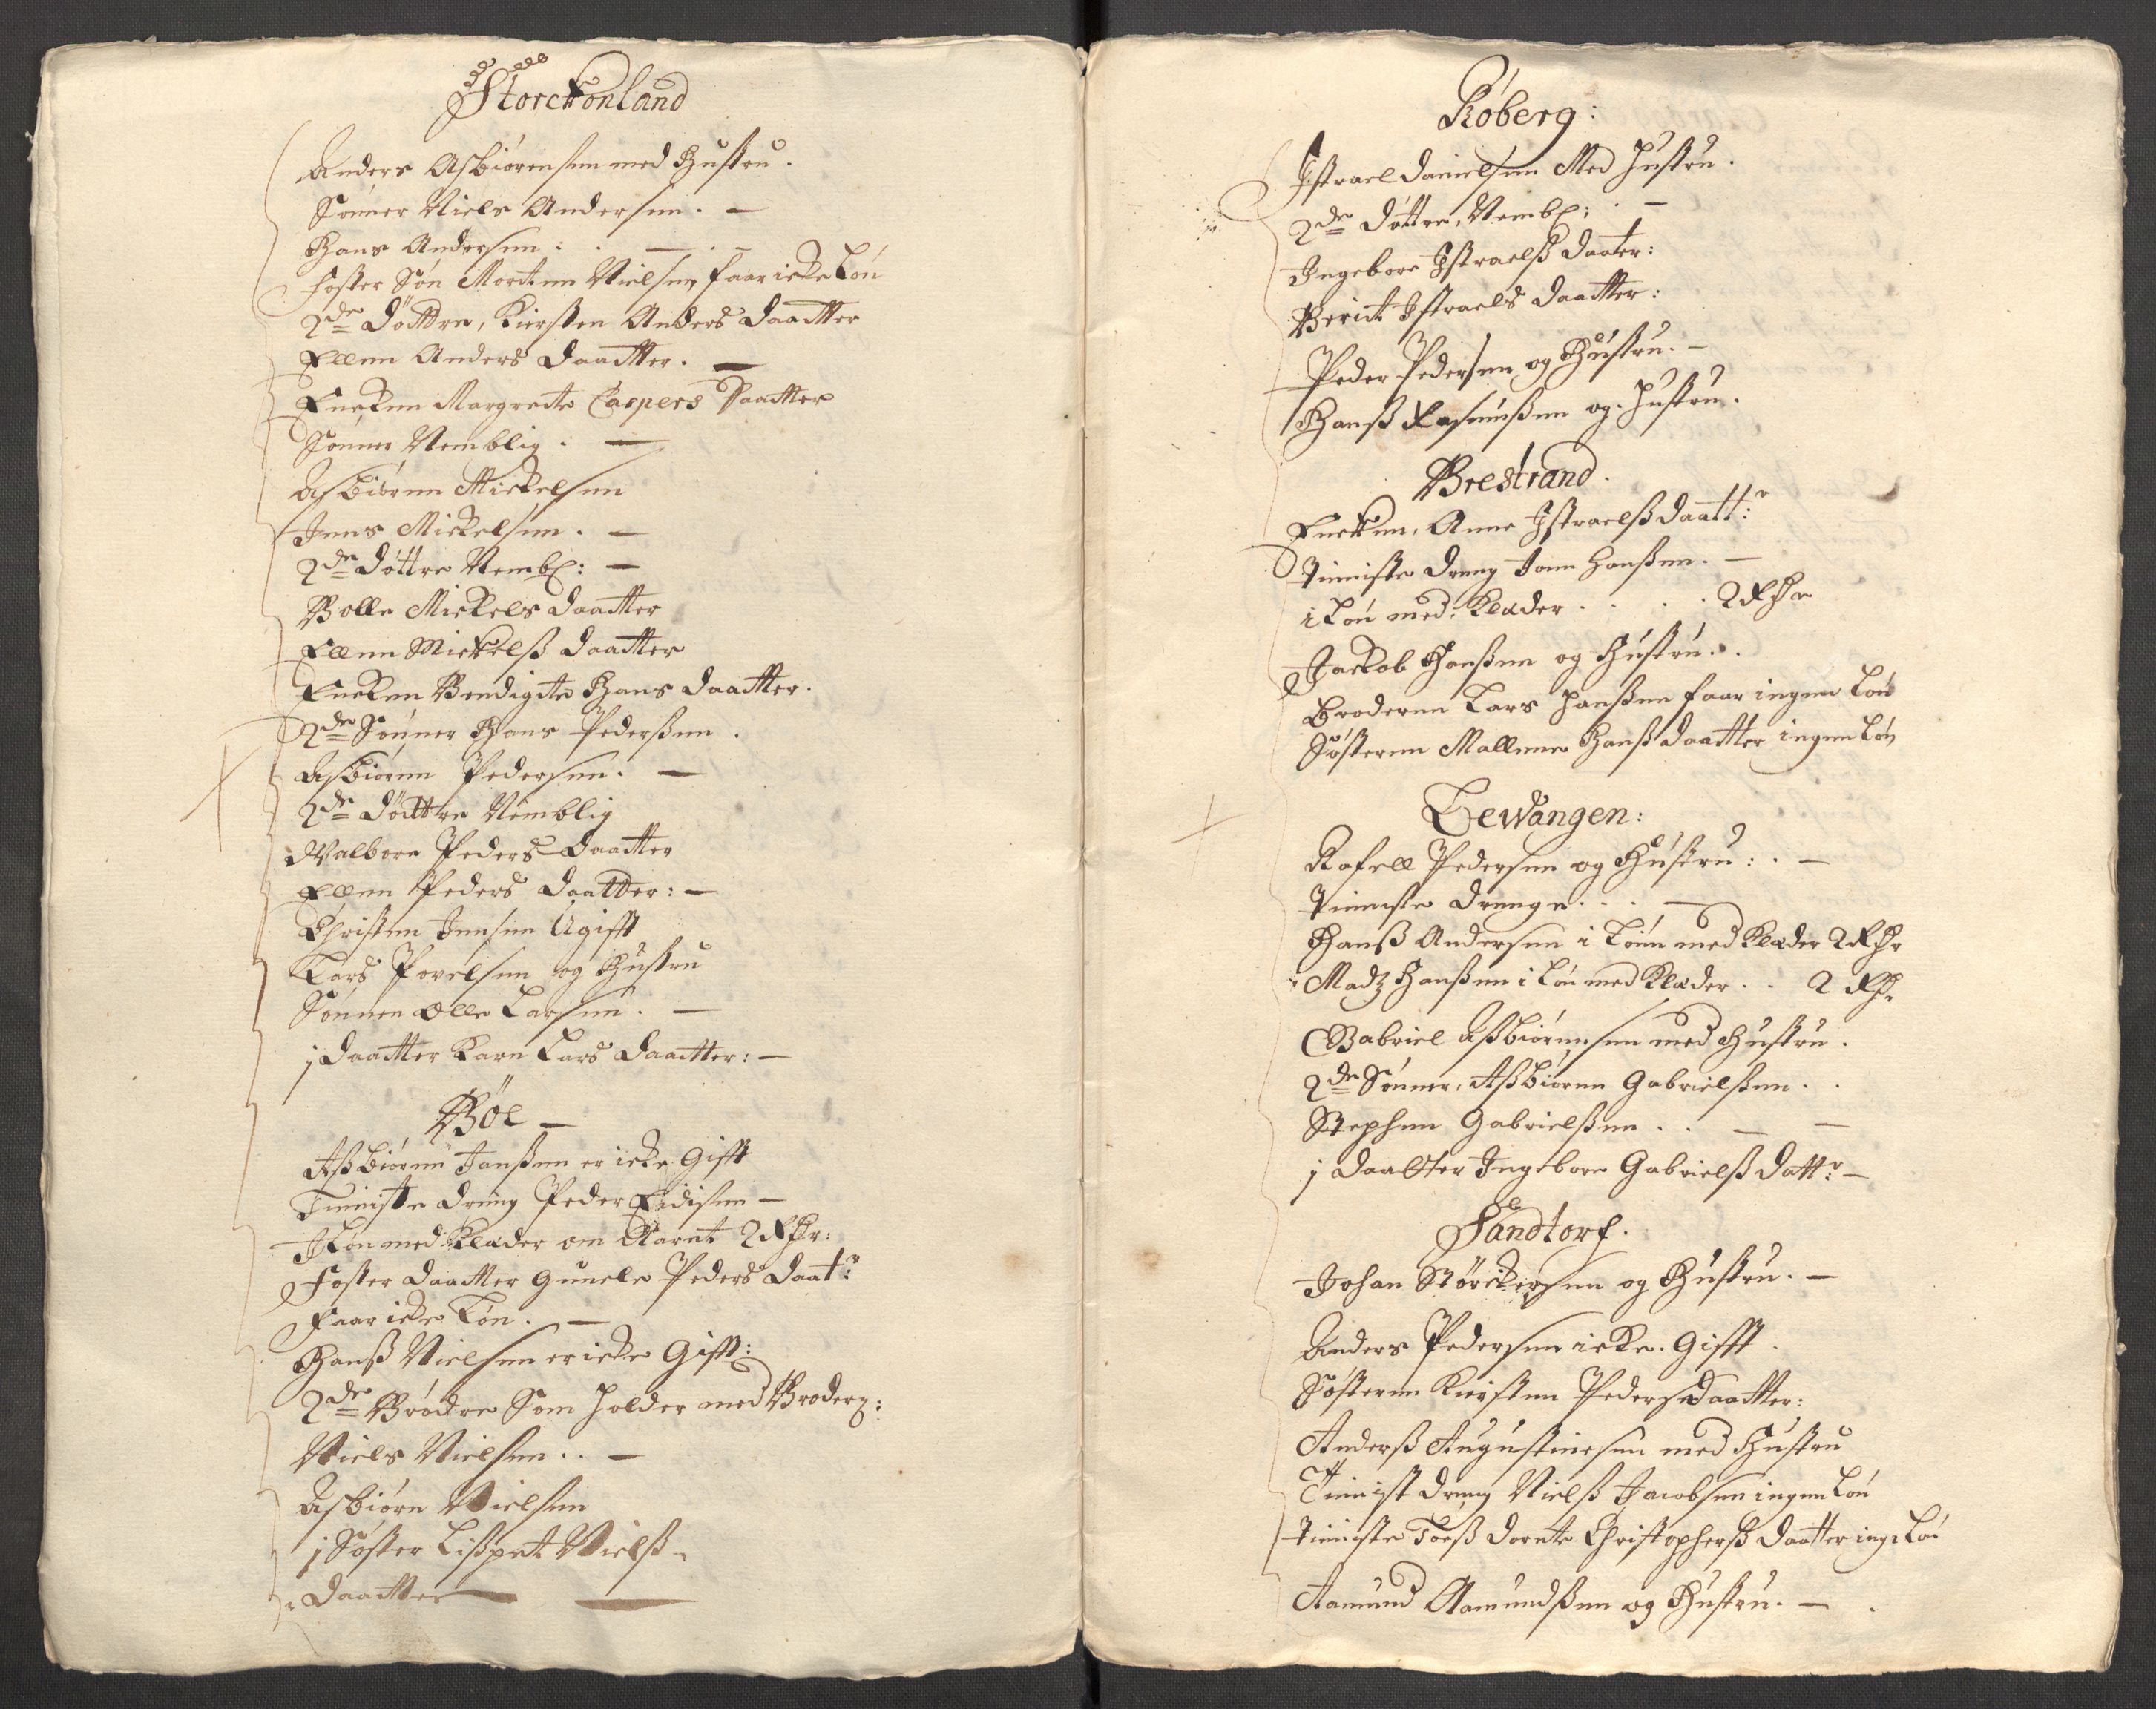 Storckonland
Anders Asbiörensen med Hustru.
Sønner Niels Andersen. —
Hans Andersen: . — . —
Foster Søn Morten Nielsen faar icke Løn
2de Döttre, Kiersten Anders Daatter
Ellen Anders Daatter. —
Encken Margrete Caspers Daatter
Sønner Nemblig. —
Asbiörn Mickelsen
Jens Mickelsen. —
2de Döttre Nembl: —
Bolle Mickels Daatter
Ellen Mickelß Daatter
Encken Bendigte Hans Daatter.
2de Sønner Hans Pederßen.
Asbiörn Pedersen. —
2de Döttre Nemblig
Walbore Peders Daatter
Ellen Peders Daatter: —
Christen Jensen Ugifft
Lars Povelsen og Hustru
Sønnen Olle Larsen. —
j Daatter Karn Lars Daatter: —
Böe —
Aßbiörn Janßen er icke Gifft
Tieniste dreng Peder —
J Løn med Klæder om Aaret 2 Rdr:
Foster Daatter Gunele Peders Daatr:
Faar icke Løn. —
Hanß Nielsen er icke Gifft:
2de Brödre Som holder med Broder:
Niels Nielsen. . —
Asbiörn Nielsen
j Søster Lißpet Nielß
Daatter —
Röberg:
Jstrael Danielsen Med Hustru.
2de Döttre, Nembl: . —
Jngebore Jstraelß Daater:
Berit Jstraels Daatter:
Peder Pedersen og Hustru. —
Hanß Rasmußen og Hustru.
Brestrand.
Encken, Anne Jstraelß Daattr:
Tieniste Dreng Jonn Hanßen. —
i Løn med Klæder . . . . 2 Rdr
Jackob Hanßen og Hustru. .
Broderen Lars Hanßen faar ingen Løn
Søsteren Mallene Hanß Daatter ingen Løn
Lewangen:
Rafell Pedersen og Hustru: . —
Tieniste Drenge. . . —
Hanß Andersen i Løn med Klæder 2 Rdr
Madz Hanßen i Løn med Klæder . . 2 Rdr
Gabriel Aßbiörnsen med Hustru.
2de Sønner, Aßbiörn Gabrielßen. .
Stephen Gabrielßen . . — —
j Daatter Jngebore Gabrielß Dattr: —
Sandtorf.
Johan Störckersen og Hustru. —
Anders Pedersen icke Gifft.
Søsteren Kirsten Peders Daatter:
Anderß Augustinesen med Hustru
Tienist dreng Nielß Jacobsen ingen Løn
Tieniste Töeß Dorete Christopherß Daatter ing: Løn
Aamund Aamundßen og Hustru. — .